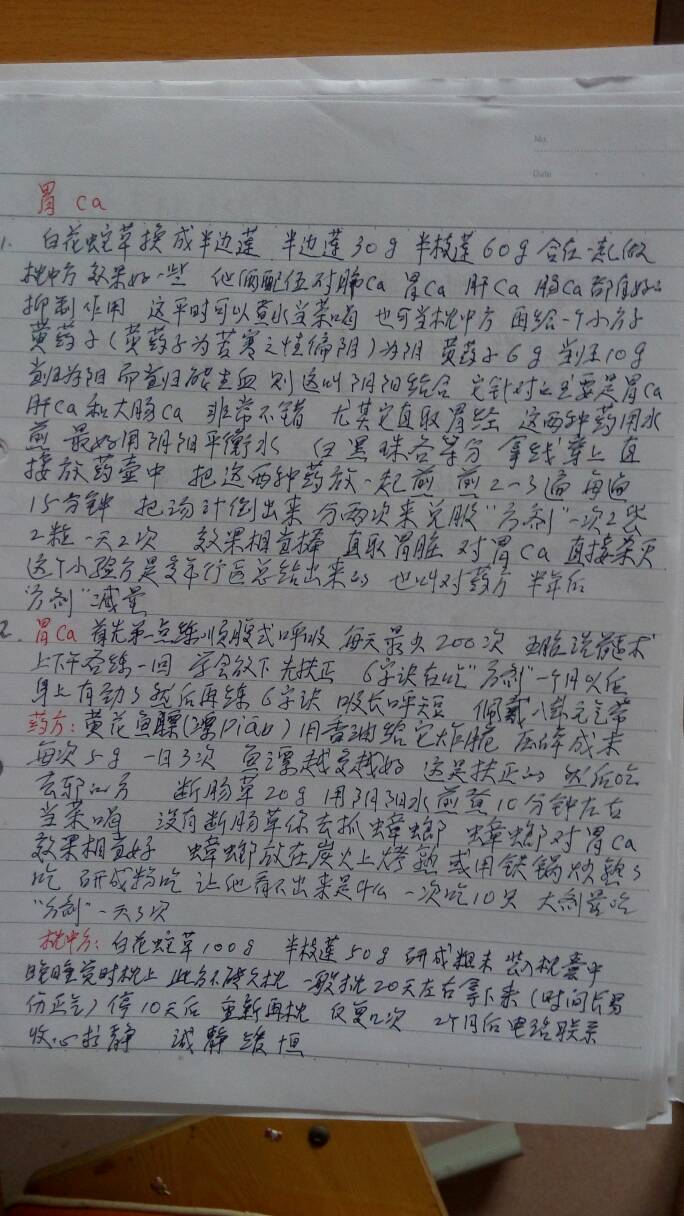 No.
Date
胃ca
1. 白花蛇草换成半边莲 半边莲30g 半枝莲60g 合在一起做
枕中方 效果好一些 他俩配伍对肺Ca 胃Ca 肝Ca 肠Ca都有好的
抑制作用 这平时可以煮水当茶喝 也可当枕中方 再给一个小方子
黄药子(黄药子为苦寒之性偏阴)为阴 黄药子6g 当归10g
当归为阳 而当归能生血 则这叫阴阳结合 它针对的主要是胃Ca
肝Ca和大肠Ca 非常不错 尤其它直取胃经 这两种药用水
煎 最好用阴阳平衡水 白黑珠各等分 拿线穿上 直
接放药壶中 把这两种药放一起煎 煎2-3遍 每遍
15分钟 把汤汁倒出来 分两次来兑服"方剂"一次2袋
2粒 一天2次 效果相当棒 直取胃脏 对胃Ca 直接杀灭
这个小验方是多年行医总结出来的 也叫对药方 半年后
"方剂"减量
2. 胃Ca 首先第一点练顺腹式呼吸 每天最少200次 五脏洗髓术
上下午各练一回 学会放下 先扶正 6字诀在吃"方剂"一个月以后
身上有劲了然后再练6字诀 吸长呼短 佩戴八卦元气带
药方:黄花鱼鳔(漂piao)用香油给它炸脆 压碎成末
每次5g 一日3次 鱼漂越多越好 这是扶正的 然后吃
去邪的方 断肠草20g 用阴阳水煎煮10分钟左右
当茶喝 没有断肠草你去抓蟑螂 蟑螂对胃Ca
效果相当好 蟑螂放在炭火上烤熟 或用铁锅炒熟了
吃 研成粉吃 让他看不出来是什么 一次吃10只 大剂量吃
"方剂"一天3次
枕中方:白花蛇草100g 半枝莲50g 研成粗末 装入枕囊中
晚睡觉时枕上 此方不能久枕 一般枕20天左右拿下来(时间长易
伤正气)停10天后 重新再枕 反复2次 2个月后电话联系
收心求静 诚静缓恒